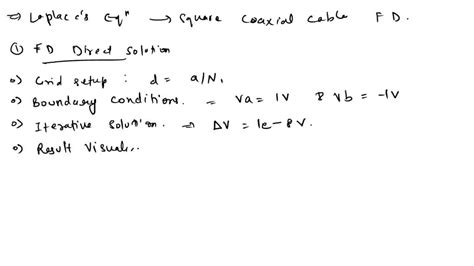 ⇒ Laplace's Eqⁿ → Square coaxial cable F D.
① FD Direct Solution
o) Grid setup : d = a/N.
o) Boundary Conditions. = Va = 1V & Vb = -1V
o) Iterative Solution. ⇒ ΔV = 1e-8V.
o) Result Visuali..